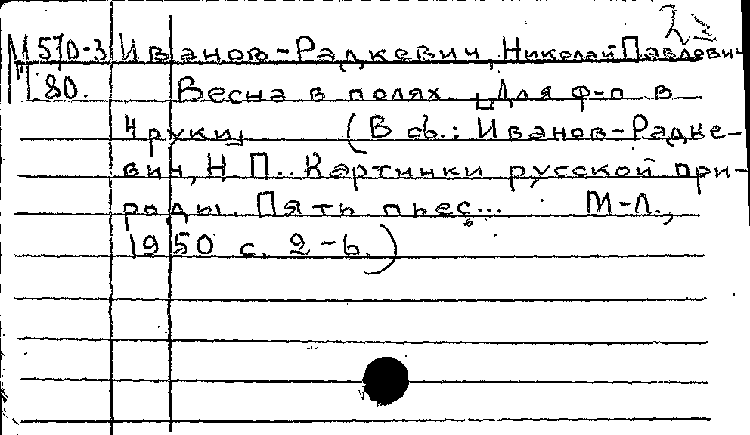 М 570-3 Иванов-Радкевич, Николай Павлович
М.80. Весна в полях. [Для ф-п в
4 руки] (В сб.: Иванов-Радке-
вич, Н.П.. Картинки русской при-
роды. Пять пьес... М-Л.,
1950 с. 2-6.)